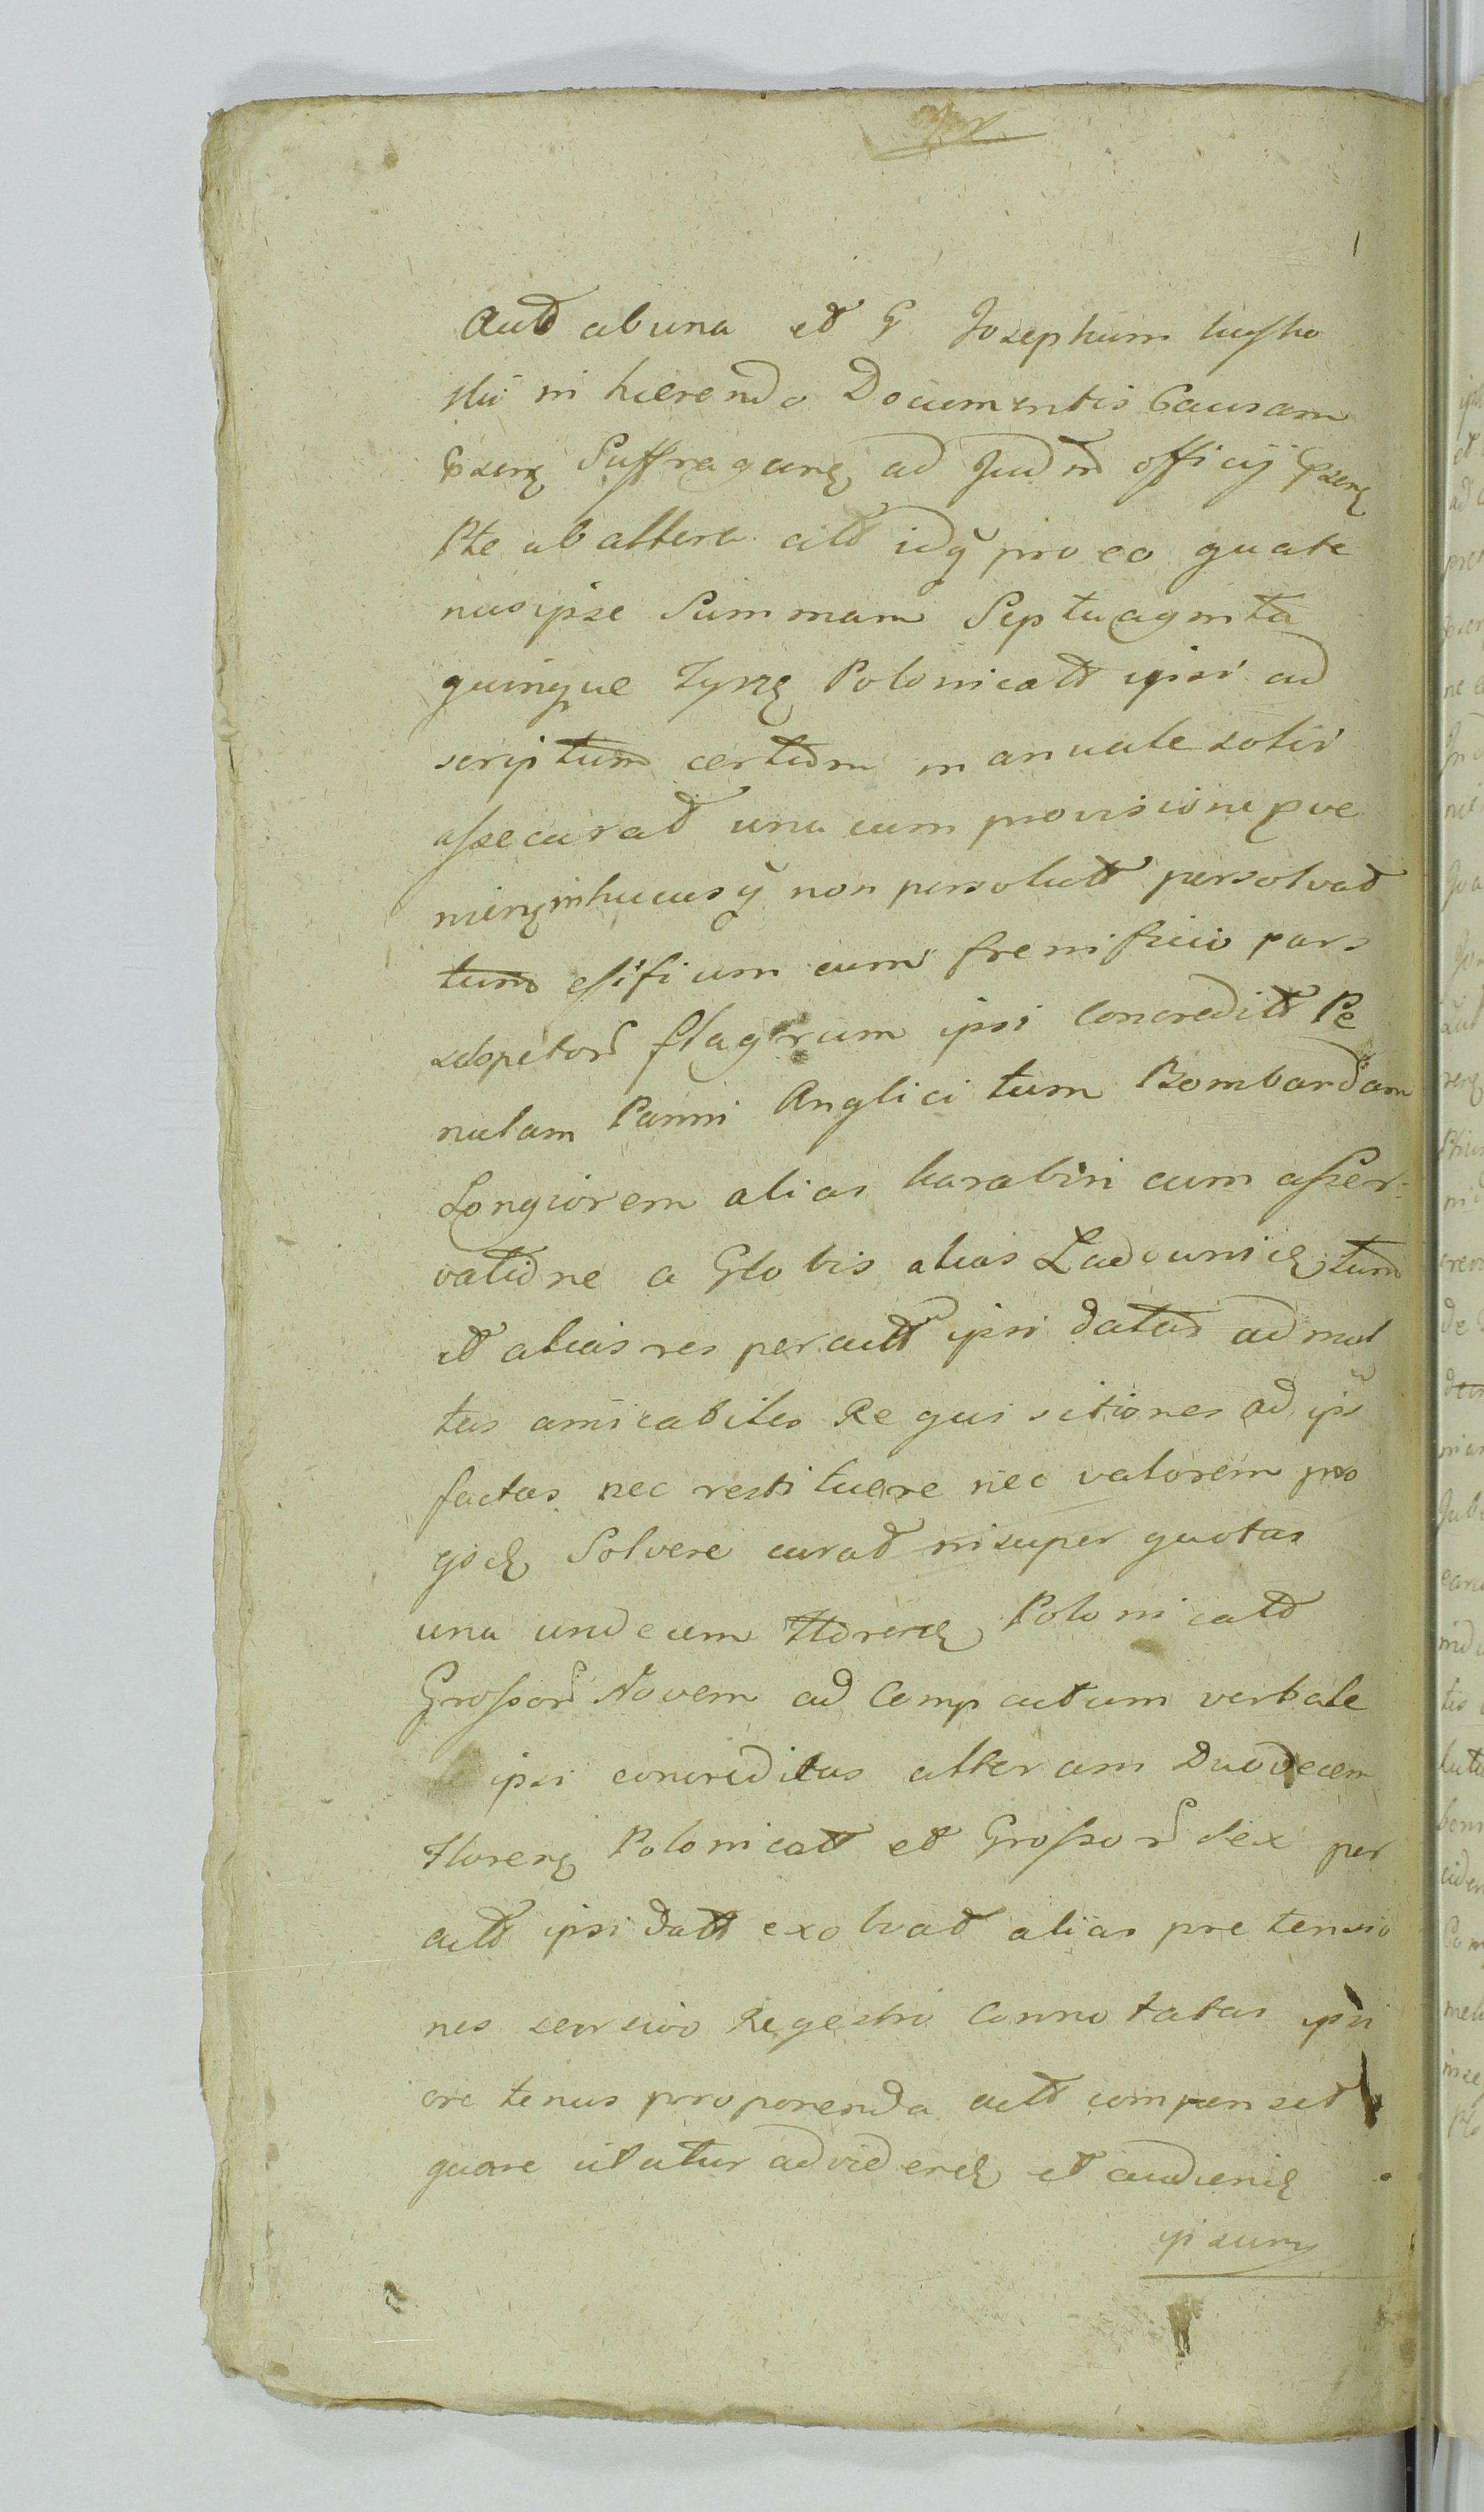 Actt ab una et G Josephum
ski in hærendo Documentis Causam
Pzenẽ Suffraganẽ ad Judm officij Pzenẽ
Pte ab altera citt idq̃ pro eo quate
nus ipse Summam Septuaginta
quinque Polonicatt ipsi ad
scriptum certum manuale sotis
assecurat una cum provisione prve
nienẽ in hucusq̃ non persolutt persolvat
tum cum pars
sclopetorũ ipsi Concreditt Pe
nulam Panni Anglici tum Bombardam
Longiorem alias karabin cum asser=
vatione a Globis alias Ladounicẽ tum
et alias res per actt ipsi datas ad mul
tas amicabiles Requisitiones ad ips
factas nec restituere nec valorem pro
Solvere curat insuper quotas
una undecem Florenẽ Polonicatt
Grossorũ Novem ad Compactum verbale
ipsi concreditas alteram Duodecem
Florenẽ Polonicatt et Grossorũ sex per
actt ipsi datt exolvat alias pretensio
nes seorsivo Regestro Connotatas ipsi
ore tenus proponenda actt compenset
quare citatur ad videndẽ et audiendẽ